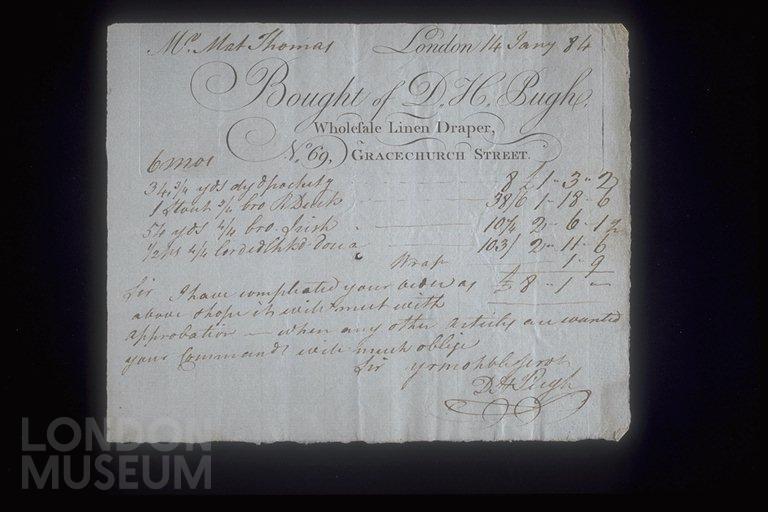 Mr. Mat Thomas London 14 Jany 84
Bought of D. H. Pugh,
Wholeſale Linen Draper,
No. 69, GRACECHURCH STREET.
6 mos
34 3/4 yds dyd pockety 8 1 - 3 - 2
1 3/4 bro R Duck 38/6 1 - 18 - 6
54 yds 4/4 bro. Irish 10 1/4 2 - 6 - 1
1/2 ps 4/4 Corded Chkd 103/ 2 - 11 - 6
Wrap 1 - 9
£ 8 - 1 -
Sir I have compleated your order as
above & hope it will meet with
approbation — when any other Articles are wanted
your Commands will much oblige
Sir yr mo hble Servt
D H Pugh
LONDON
MUSEUM